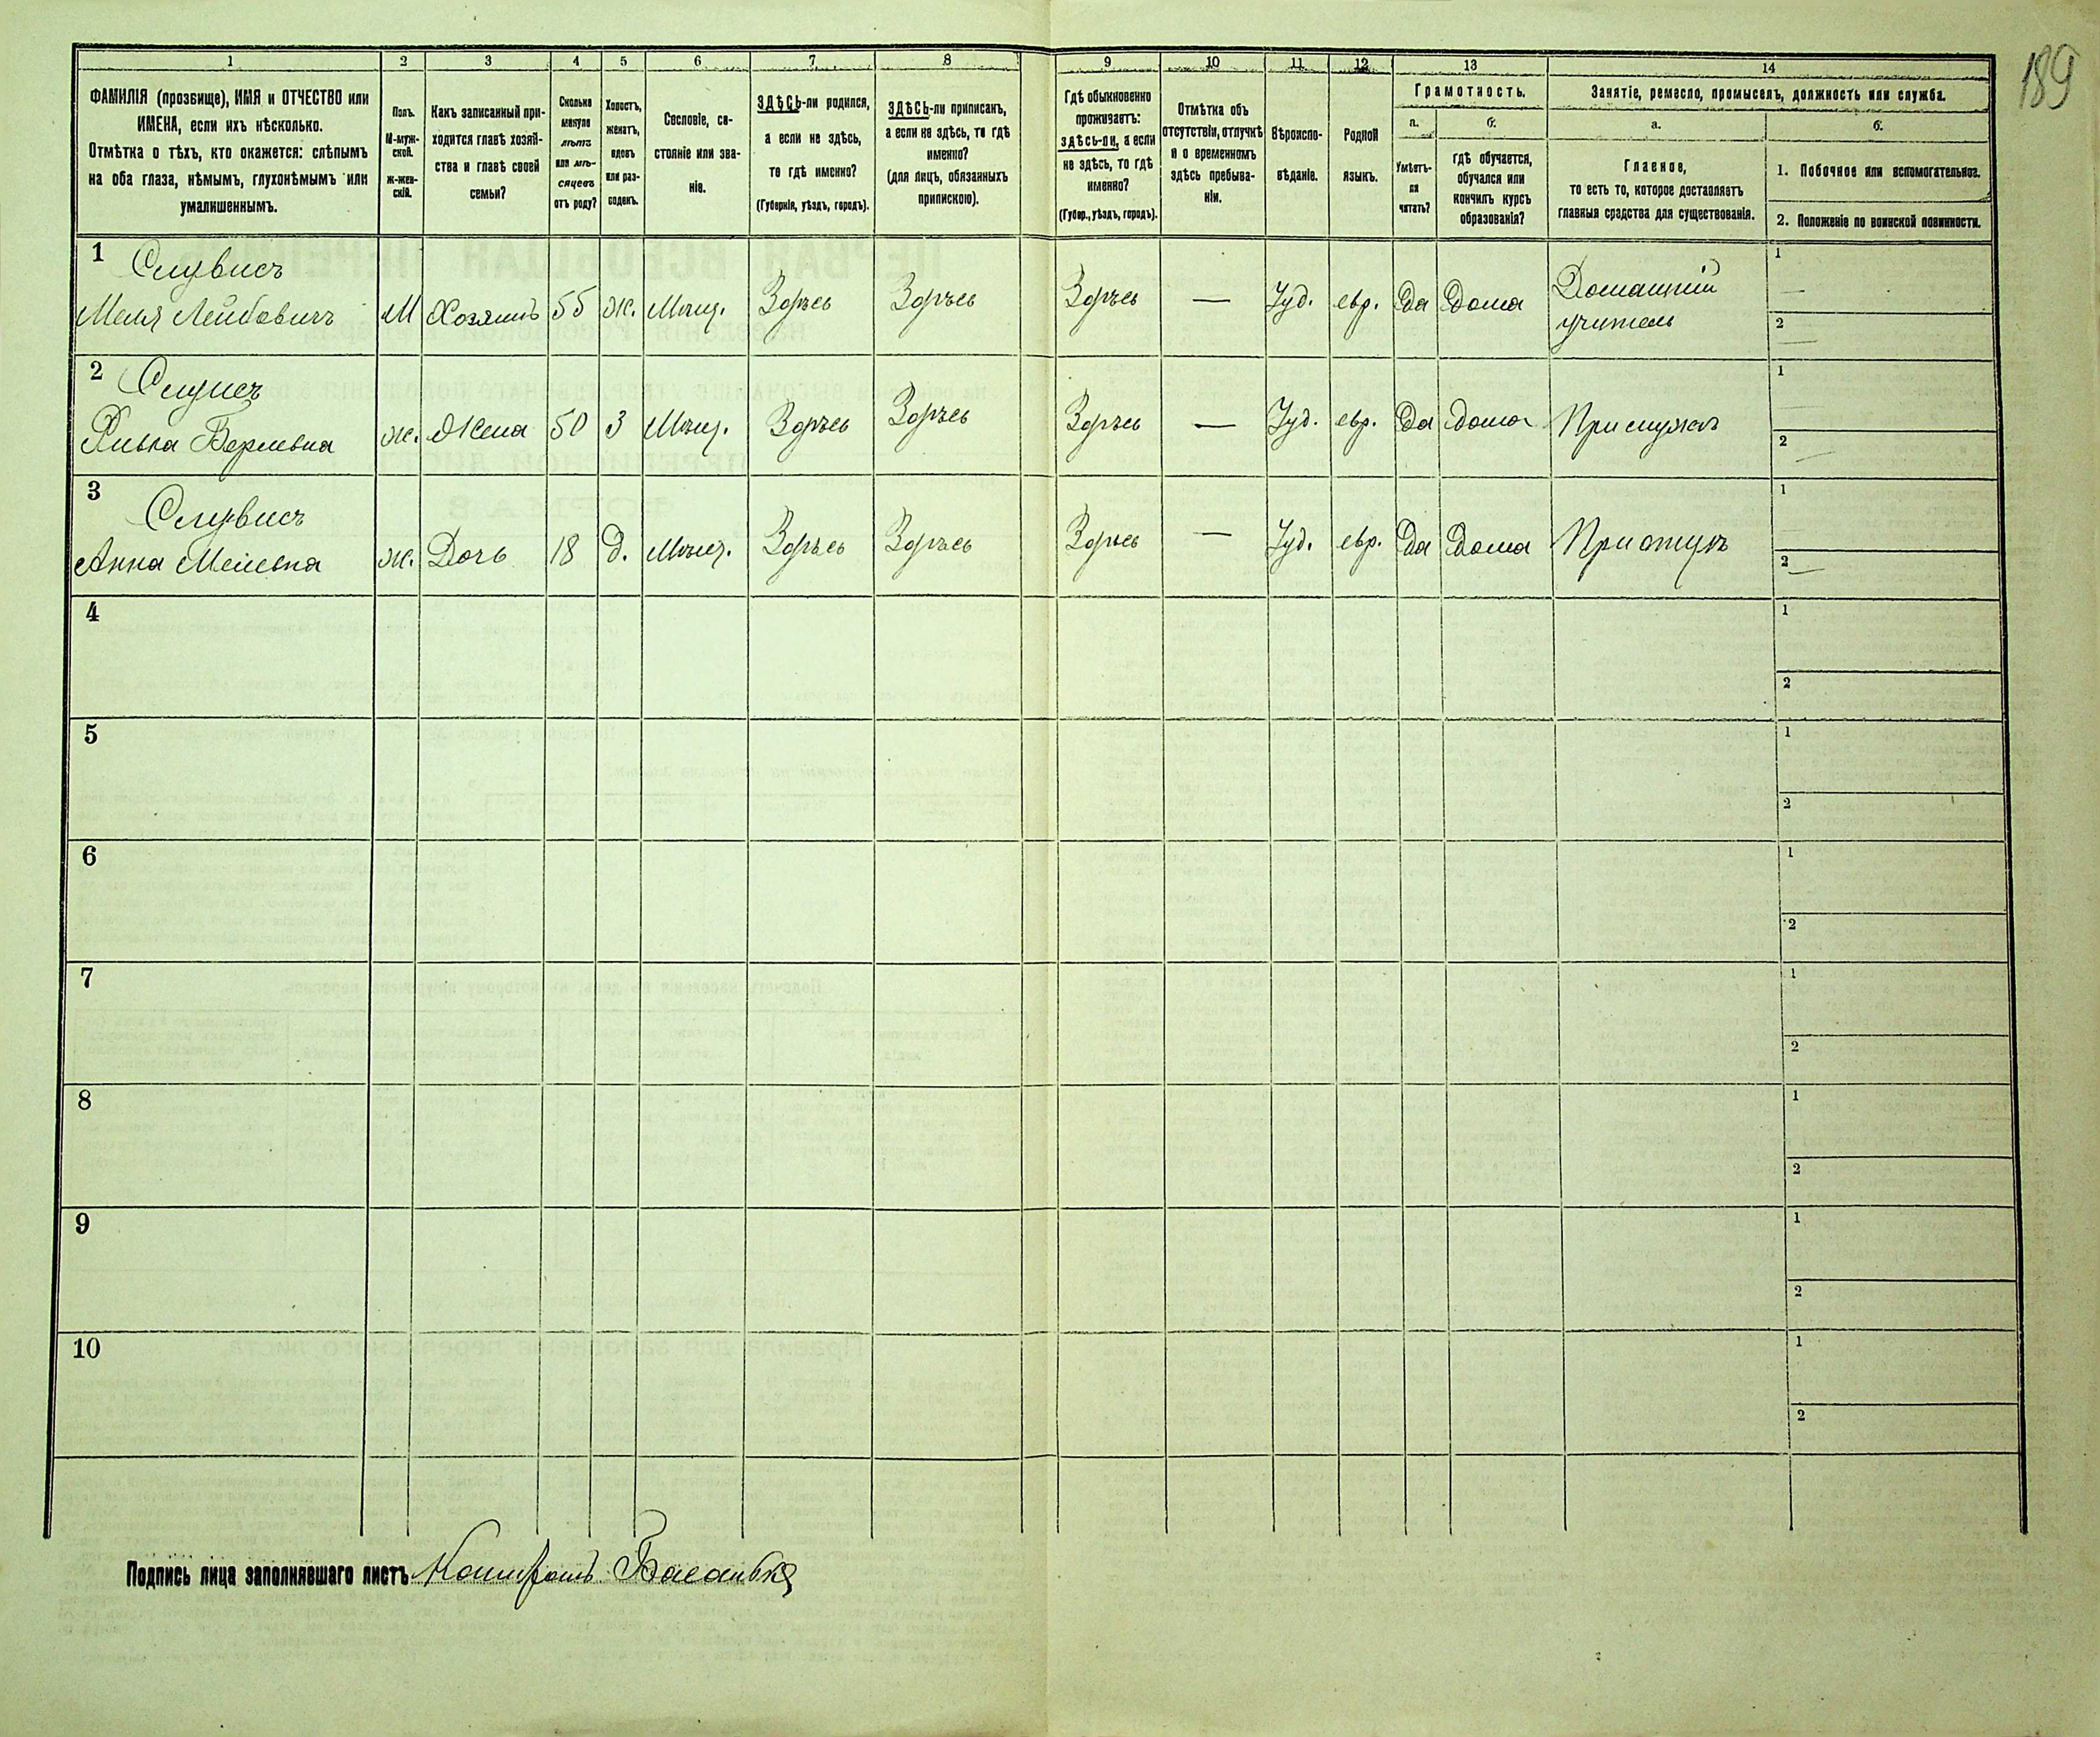 189
1 2 3 4 5 6 7 8 9 10 11 12 13 14
ФАМИЛІЯ (прозвище), ИМЯ и ОТЧЕСТВО или
ИМЕНА, если ихъ нѣсколько.
Отмѣтка о тѣхъ, кто окажется: слѣпымъ
на оба глаза, нѣмымъ, глухонѣмымъ или
умалишеннымъ.
Полъ.
М-муж-
ской.
ж-жен-
скій.
Какъ записанный при-
ходится главѣ хозяй-
ства и главѣ своей
семьи?
Сколько
минуло
лѣтъ
или мѣ-
сяцевъ
отъ роду?
Холостъ,
женатъ,
вдовъ
или раз-
веденъ.
Сословіе, со-
стояніе или зва-
ніе.
ЗДѢСЬ-ли родился,
а если не здѣсь,
то гдѣ именно?
(Губернія, уѣздъ, городъ).
ЗДѢСЬ-ли приписанъ,
а если не здѣсь, то гдѣ
именно?
(для лицъ, обязанныхъ
припискою).
Гдѣ обыкновенно
проживаетъ:
здѣсь-ли, а если
не здѣсь, то гдѣ
именно?
(Губер., уѣздъ, городъ).
Отмѣтка объ
отсутствіи, отлучкѣ
и о временномъ
здѣсь пребыва-
ніи.
Вѣроиспо-
вѣданіе.
Родной
языкъ.
Грамотность.
а.
Умѣетъ-
ли
читать?
б.
гдѣ обучается,
обучался или
кончилъ курсъ
образованія?
Занятіе, ремесло, промыселъ, должность или служба.
а.
Главное,
то есть то, которое доставляетъ
главныя средства для существованія.
б.
1. Побочное или вспомогательное.
2. Положеніе по воинской повинности.
1 Слувисъ
Меля Лейбовичъ М Хозяинъ 55 ж. Мѣщ. Здѣсь Здѣсь Здѣсь — Іуд. евр. Да Дома Домашній
учитель
1 —
2 —
2 Слувисъ
Ривка Берлевна ж. Жена 50 З Мѣщ. Здѣсь Здѣсь Здѣсь — Іуд. евр. Да Дома При мужѣ
1 —
2 —
3 Слувисъ
Анна Мелевна ж. Дочь 18 д. Мѣщ. Здѣсь Здѣсь Здѣсь — Іуд. евр. Да Дома При отцѣ
1 —
2 —
4
1
2
5
1
2
6
1
2
7
1
2
8
1
2
9
1
2
10
1
2
Подпись лица заполнявшаго листъ